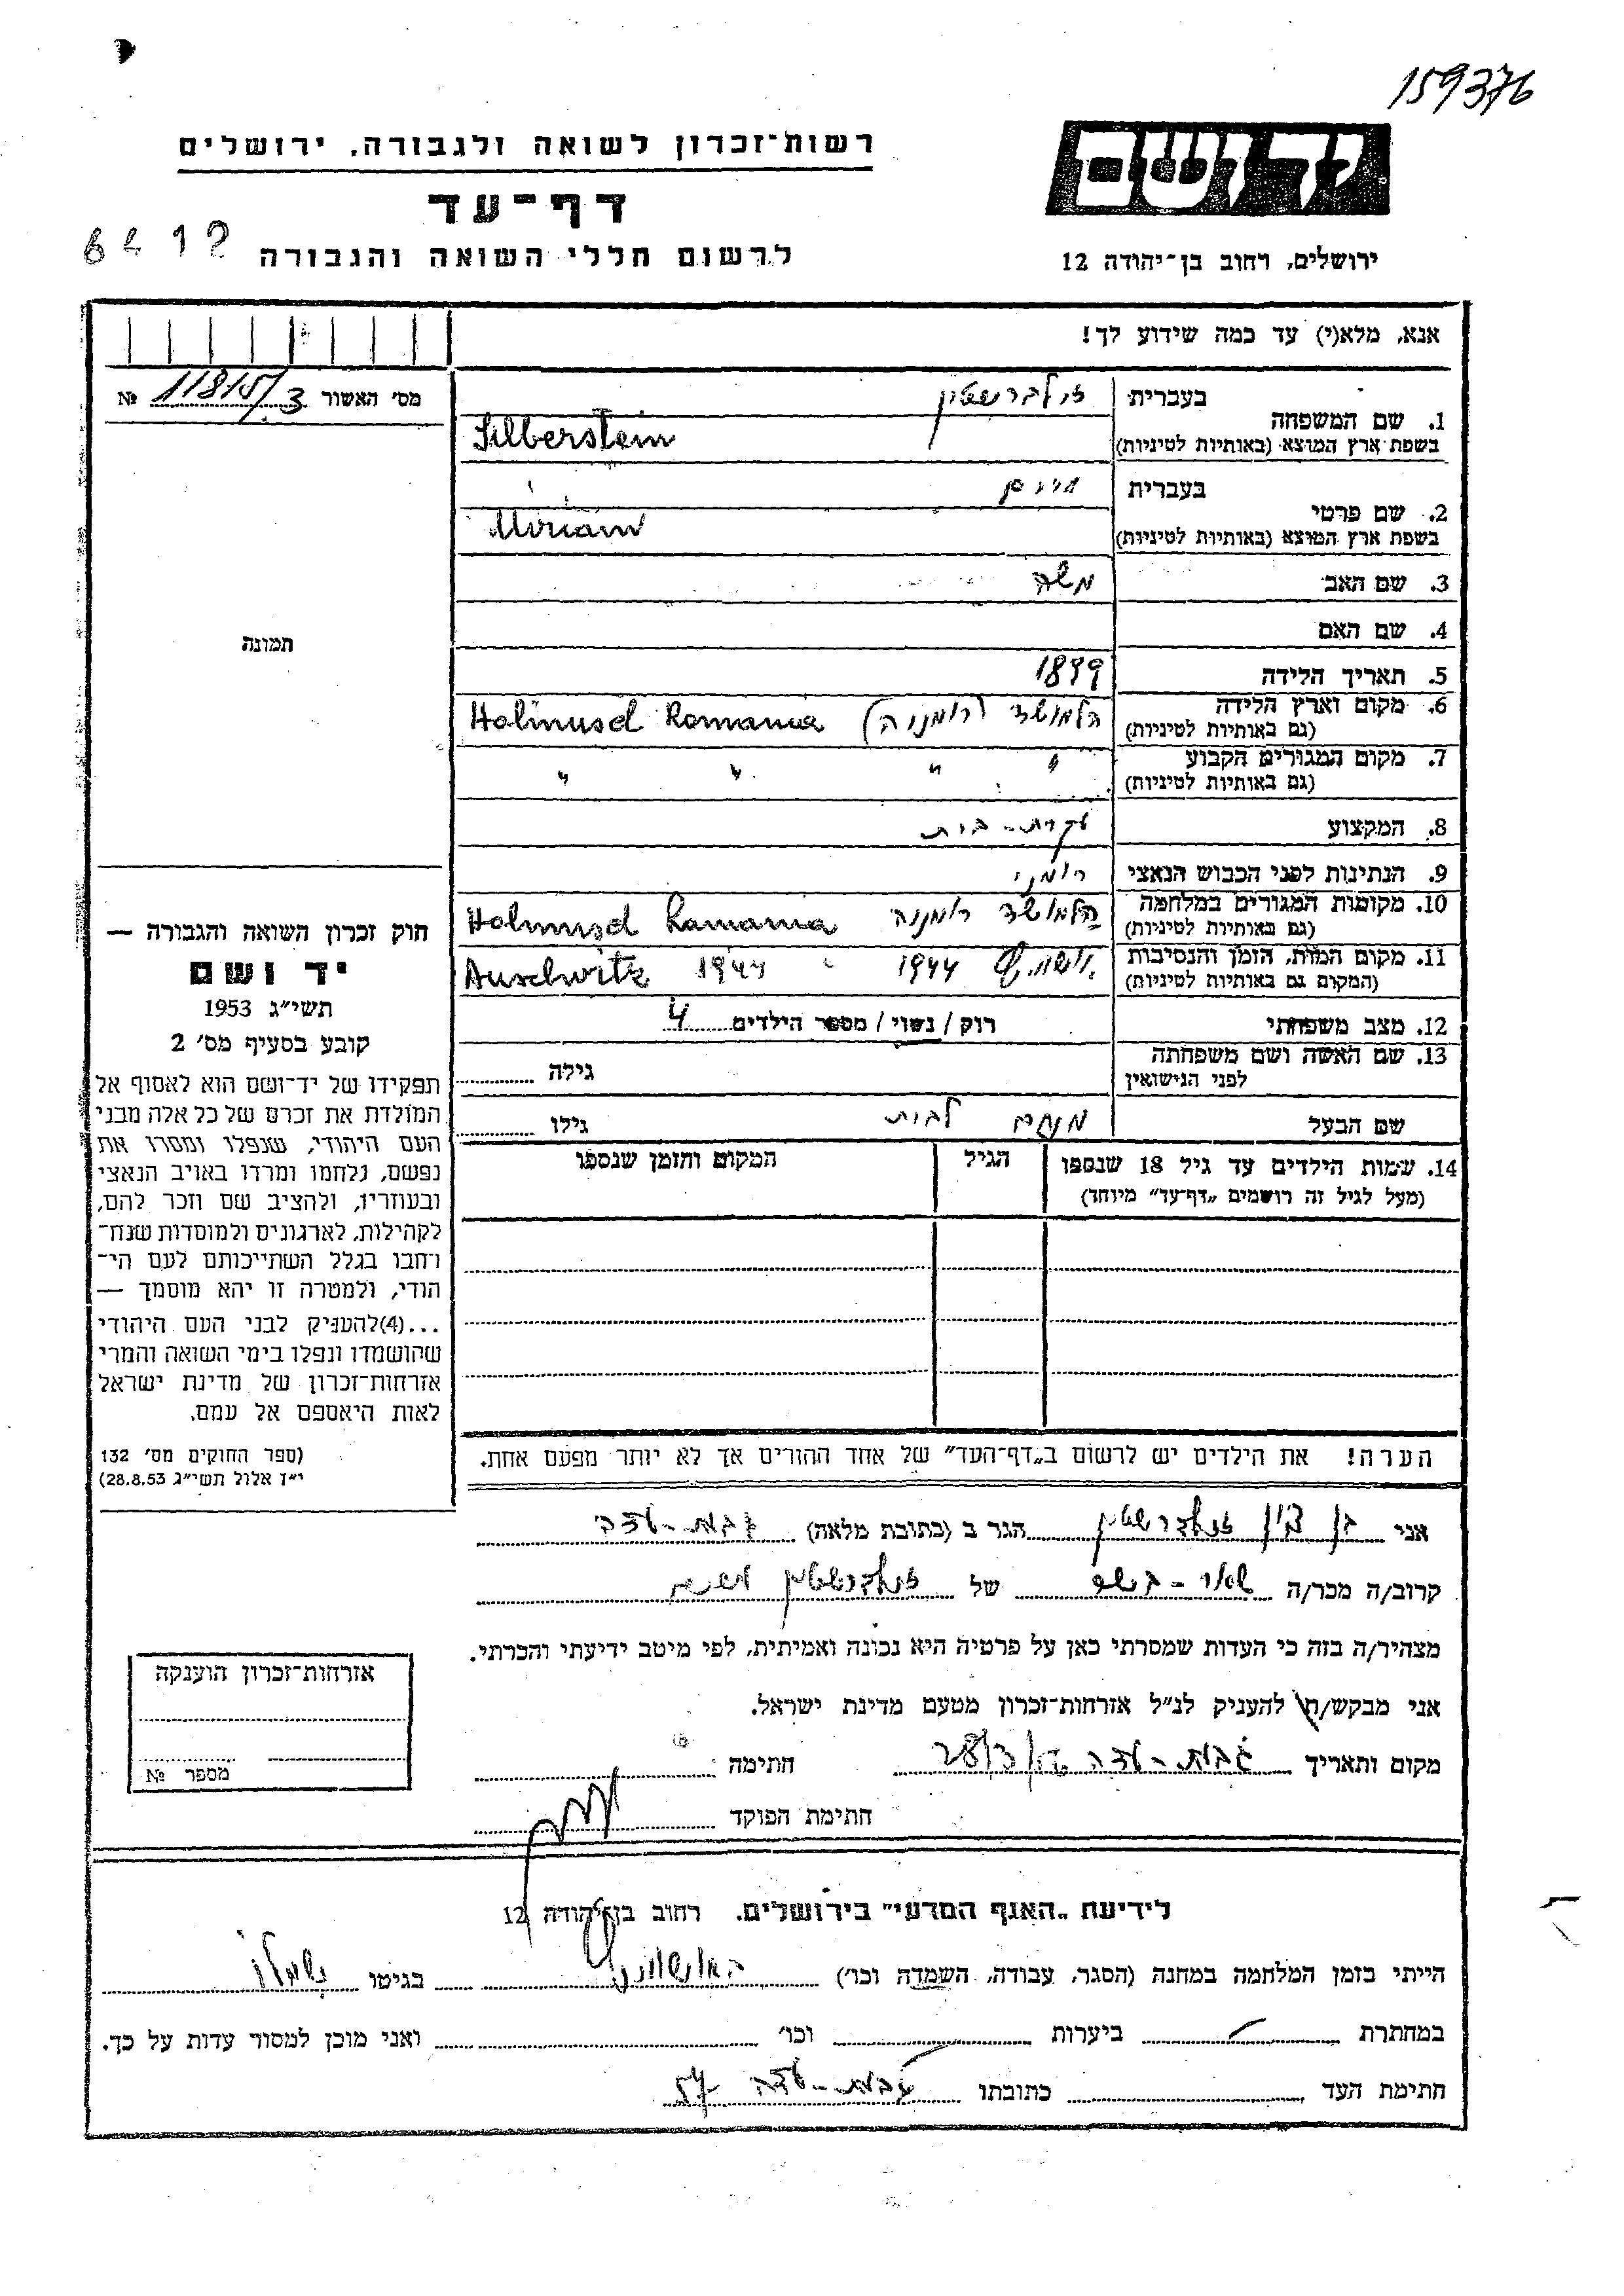 159376
ידושם
ירושלים, רחוב בן־יהודה 12
רשות־זכרון לשואה ולגבורה, ירושלים
דף־עד
לרשום חללי השואה והגבורה
אנא, מלא(י) עד כמה שידוע לך!
מס׳ האשור 11815/3 №
1. שם המשפחה
בעברית זילברשטיין
בשפת ארץ המוצא (באותיות לטיניות) Silberstein
2. שם פרטי
בעברית מירים
בשפת ארץ המוצא (באותיות לטיניות) Miriam
3. שם האב משה
4. שם האם
5. תאריך הלידה 1899
6. מקום וארץ הלידה
(גם באותיות לטיניות) הלמושד (רומניה) Halmusd Romania
7. מקום המגורים הקבוע
(גם באותיות לטיניות) " " " "
8. המקצוע עקרת-בית
9. הנתינות לפני הכבוש הנאצי רומני
10. מקומות המגורים במלחמה
(גם באותיות לטיניות) הלמושד רומניה Halmusd Romania
11. מקום המות, הזמן והנסיבות
(המקום גם באותיות לטיניות) 1944 Auschwitz 1944
12. מצב משפחתי רוק / נשוי / מספר הילדים 4
13. שם האשה ושם משפחתה
לפני הנישואין גילה
שם הבעל מנחם לבית גילו
14. שמות הילדים עד גיל 18 שנספו הגיל המקום והזמן שנספו
(מעל לגיל זה רושמים „דף־עד״ מיוחד)
הערה! את הילדים יש לרשום ב„דף־העד״ של אחד ההורים אך לא יותר מפעם אחת.
תמונה
חוק זכרון השואה והגבורה —
יד ושם
תשי״ג 1953
קובע בסעיף מס׳ 2
תפקידו של יד־ושם הוא לאסוף אל
המולדת את זכרם של כל אלה מבני
העם היהודי, שנפלו ומסרו את
נפשם, נלחמו ומרדו באויב הנאצי
ובעוזריו, ולהציב שם וזכר להם,
לקהילות, לארגונים ולמוסדות שנח־
רבו בגלל השתייכותם לעם הי־
הודי, ולמטרה זו יהא מוסמך —
...(4) להעניק לבני העם היהודי
שהושמדו ונפלו בימי השואה והמרי
אזרחות־זכרון של מדינת ישראל
לאות היאספם אל עמם.
(ספר החוקים מס׳ 132
י״ז אלול תשי״ג 28.8.53)
אני בן ציון זילברשטיין הגר ב (כתובת מלאה) גבעת-עדה
קרוב/ה מכר/ה של זילברשטיין מירים
מצהיר/ה בזה כי העדות שמסרתי כאן על פרטיה היא נכונה ואמיתית, לפי מיטב ידיעתי והכרתי.
אני מבקש/ת להעניק לנ״ל אזרחות־זכרון מטעם מדינת ישראל.
מקום ותאריך גבעת-עדה חתימה
חתימת הפוקד
אזרחות־זכרון הוענקה
מספר №
לידיעת „האגף המדעי״ בירושלים. רחוב בן־יהודה 12
הייתי בזמן המלחמה במחנה (הסגר, עבודה, השמדה וכו׳) בגיטו
במחתרת ביערות וכו׳ ואני מוכן למסור עדות על כך.
חתימת העד כתובתו גבעת-עדה 57